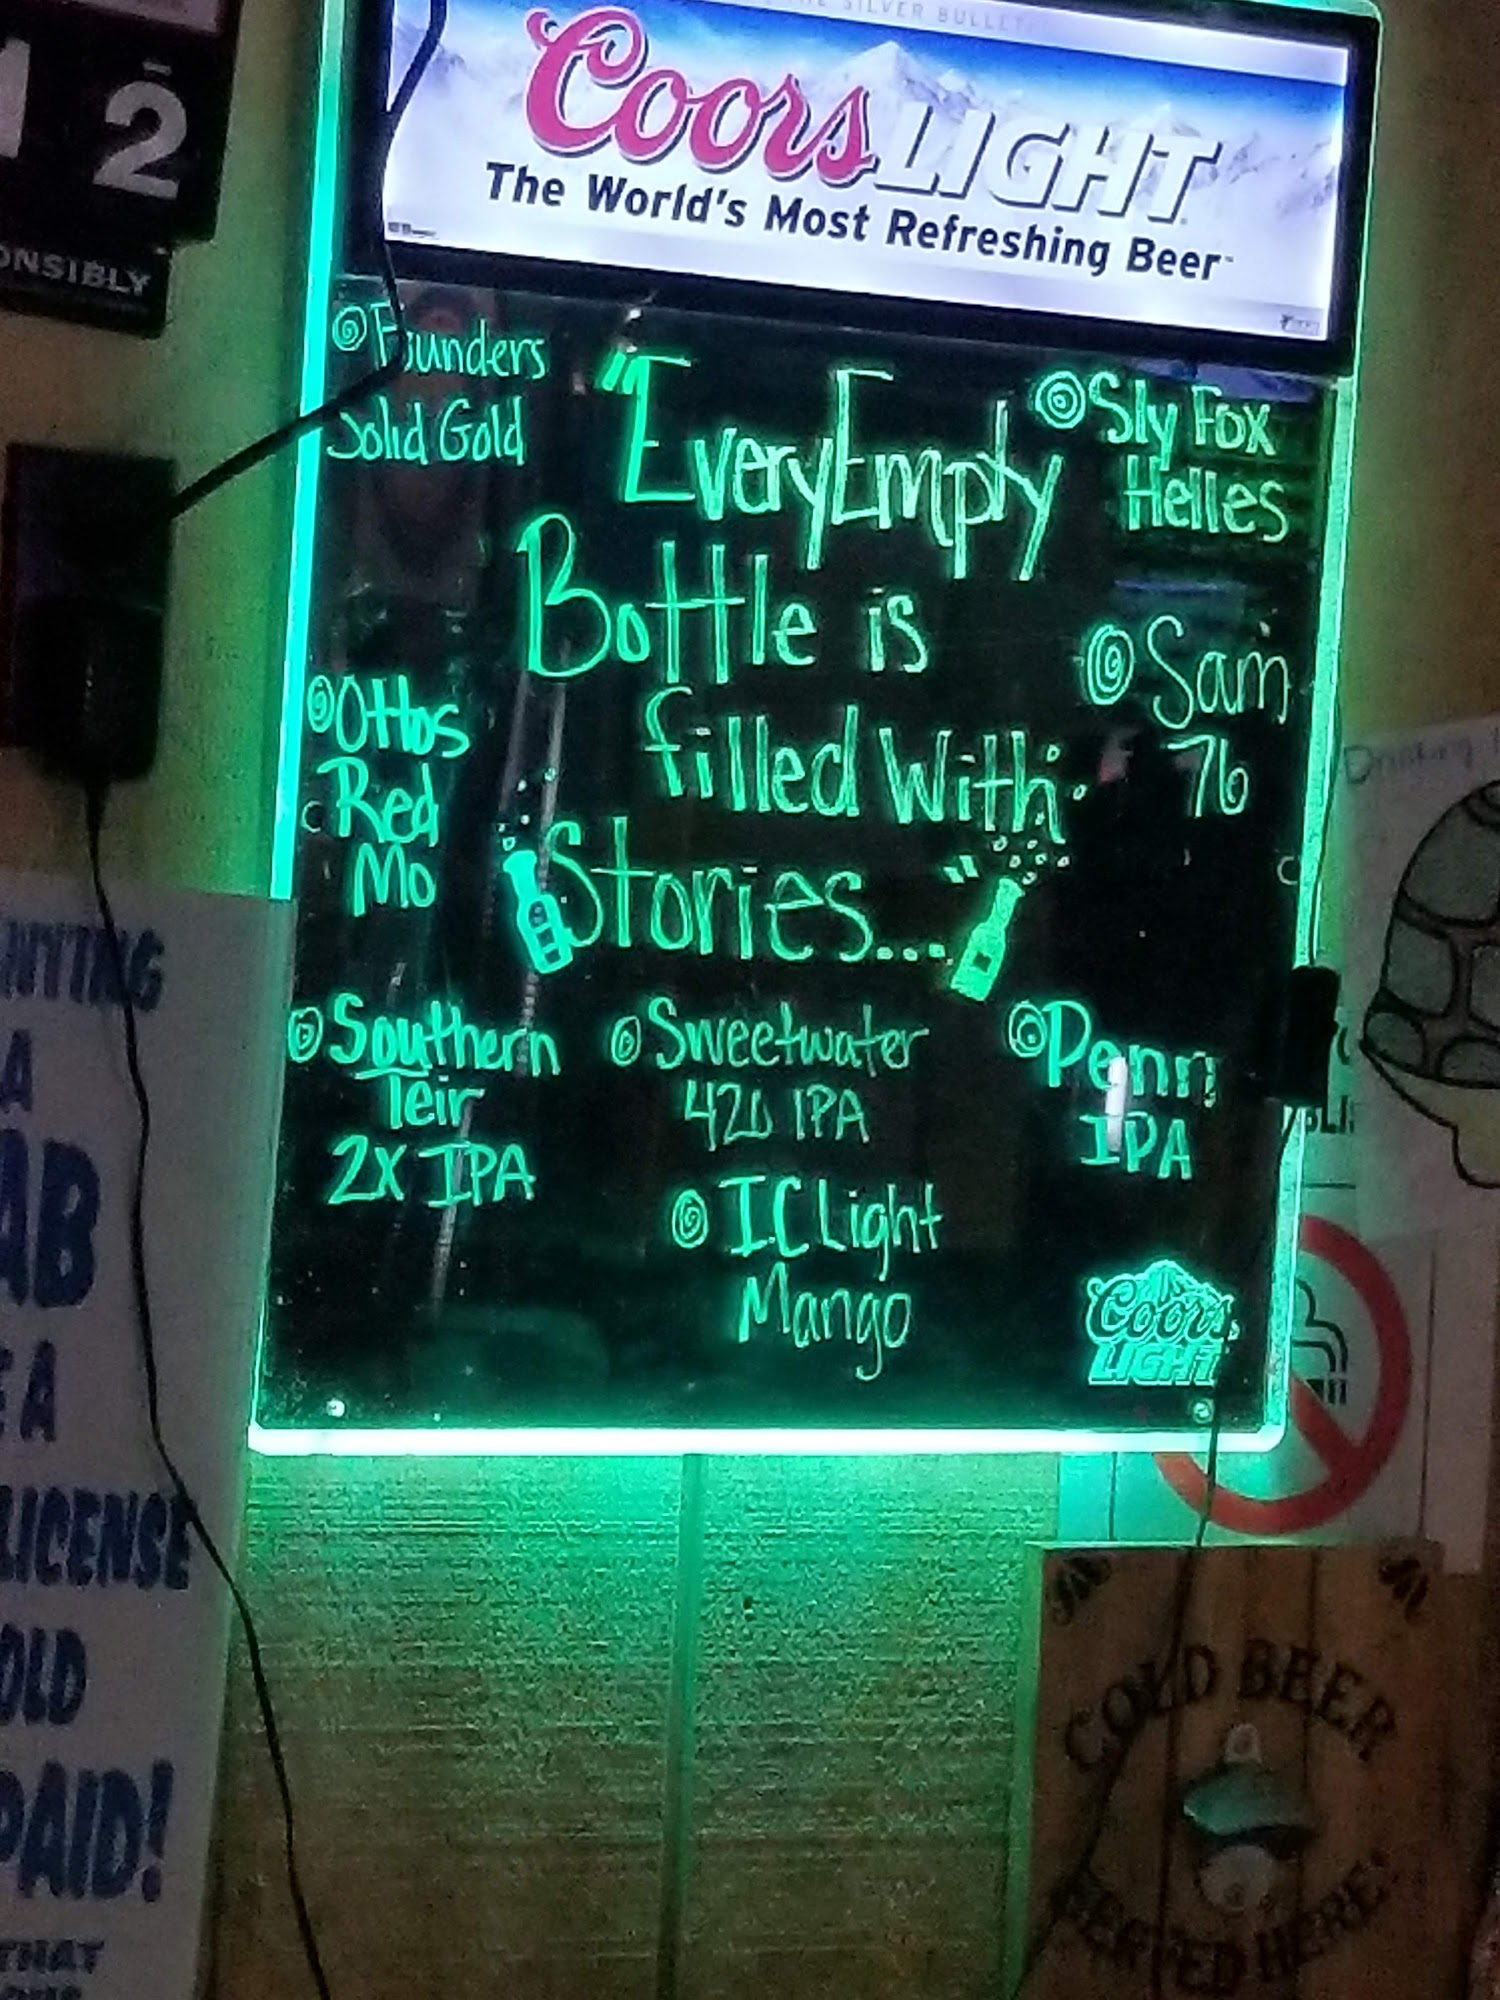 THE SILVER BULLET
Coors LIGHT
The World's Most Refreshing Beer
2
ONSIBLY
Founders
Solid Gold
"Every Empty
Bottle is
filled With
Stories..."
Sly Fox
Helles
Sam
76
Ottos
Red
Mo
Southern
Teir
2X IPA
Sweetwater
420 IPA
Penn
IPA
I.C Light
Mango
Coors
LIGHT
Drinking
A
AB
A
LICENSE
OLD
PAID!
THAT
COLD BEER
SERVED HERE